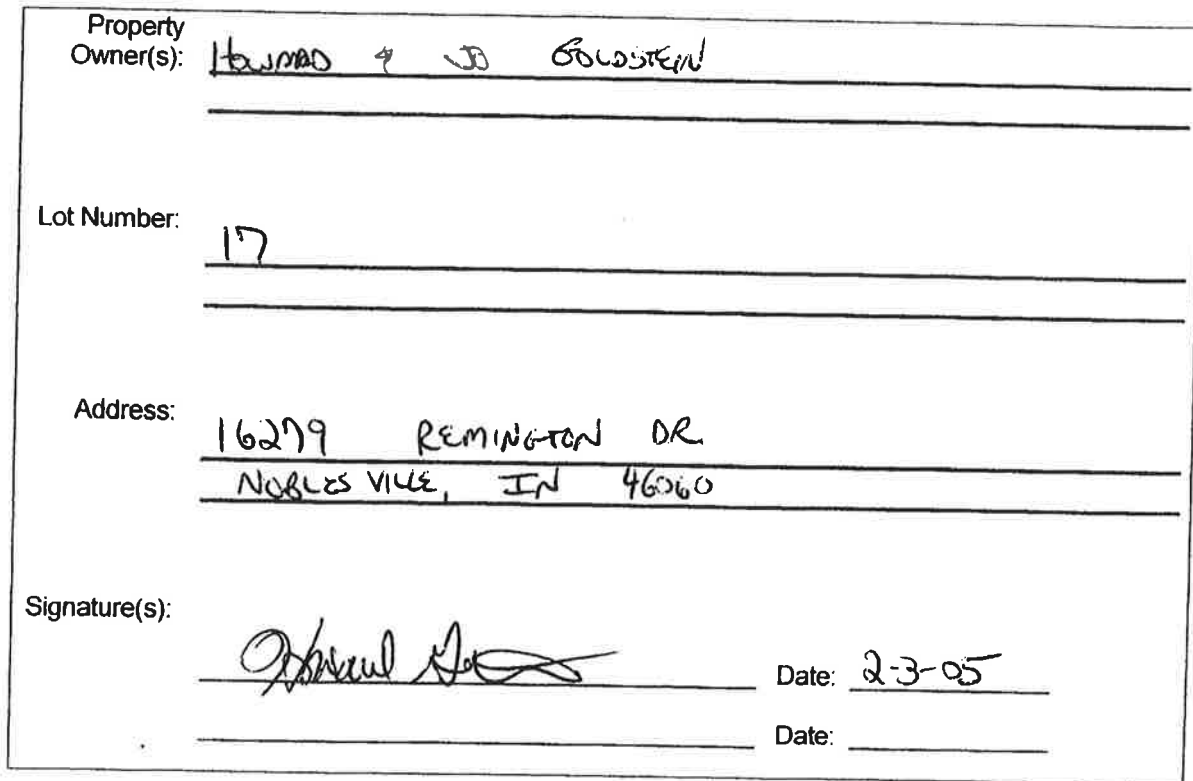 Property
Owner(s): HOWARD & JO GOLDSTEIN
Lot Number: 17
Address: 16279 REMINGTON DR.
NOBLESVILLE, IN 46060
Signature(s): Howard Date: 2-3-05
Date: